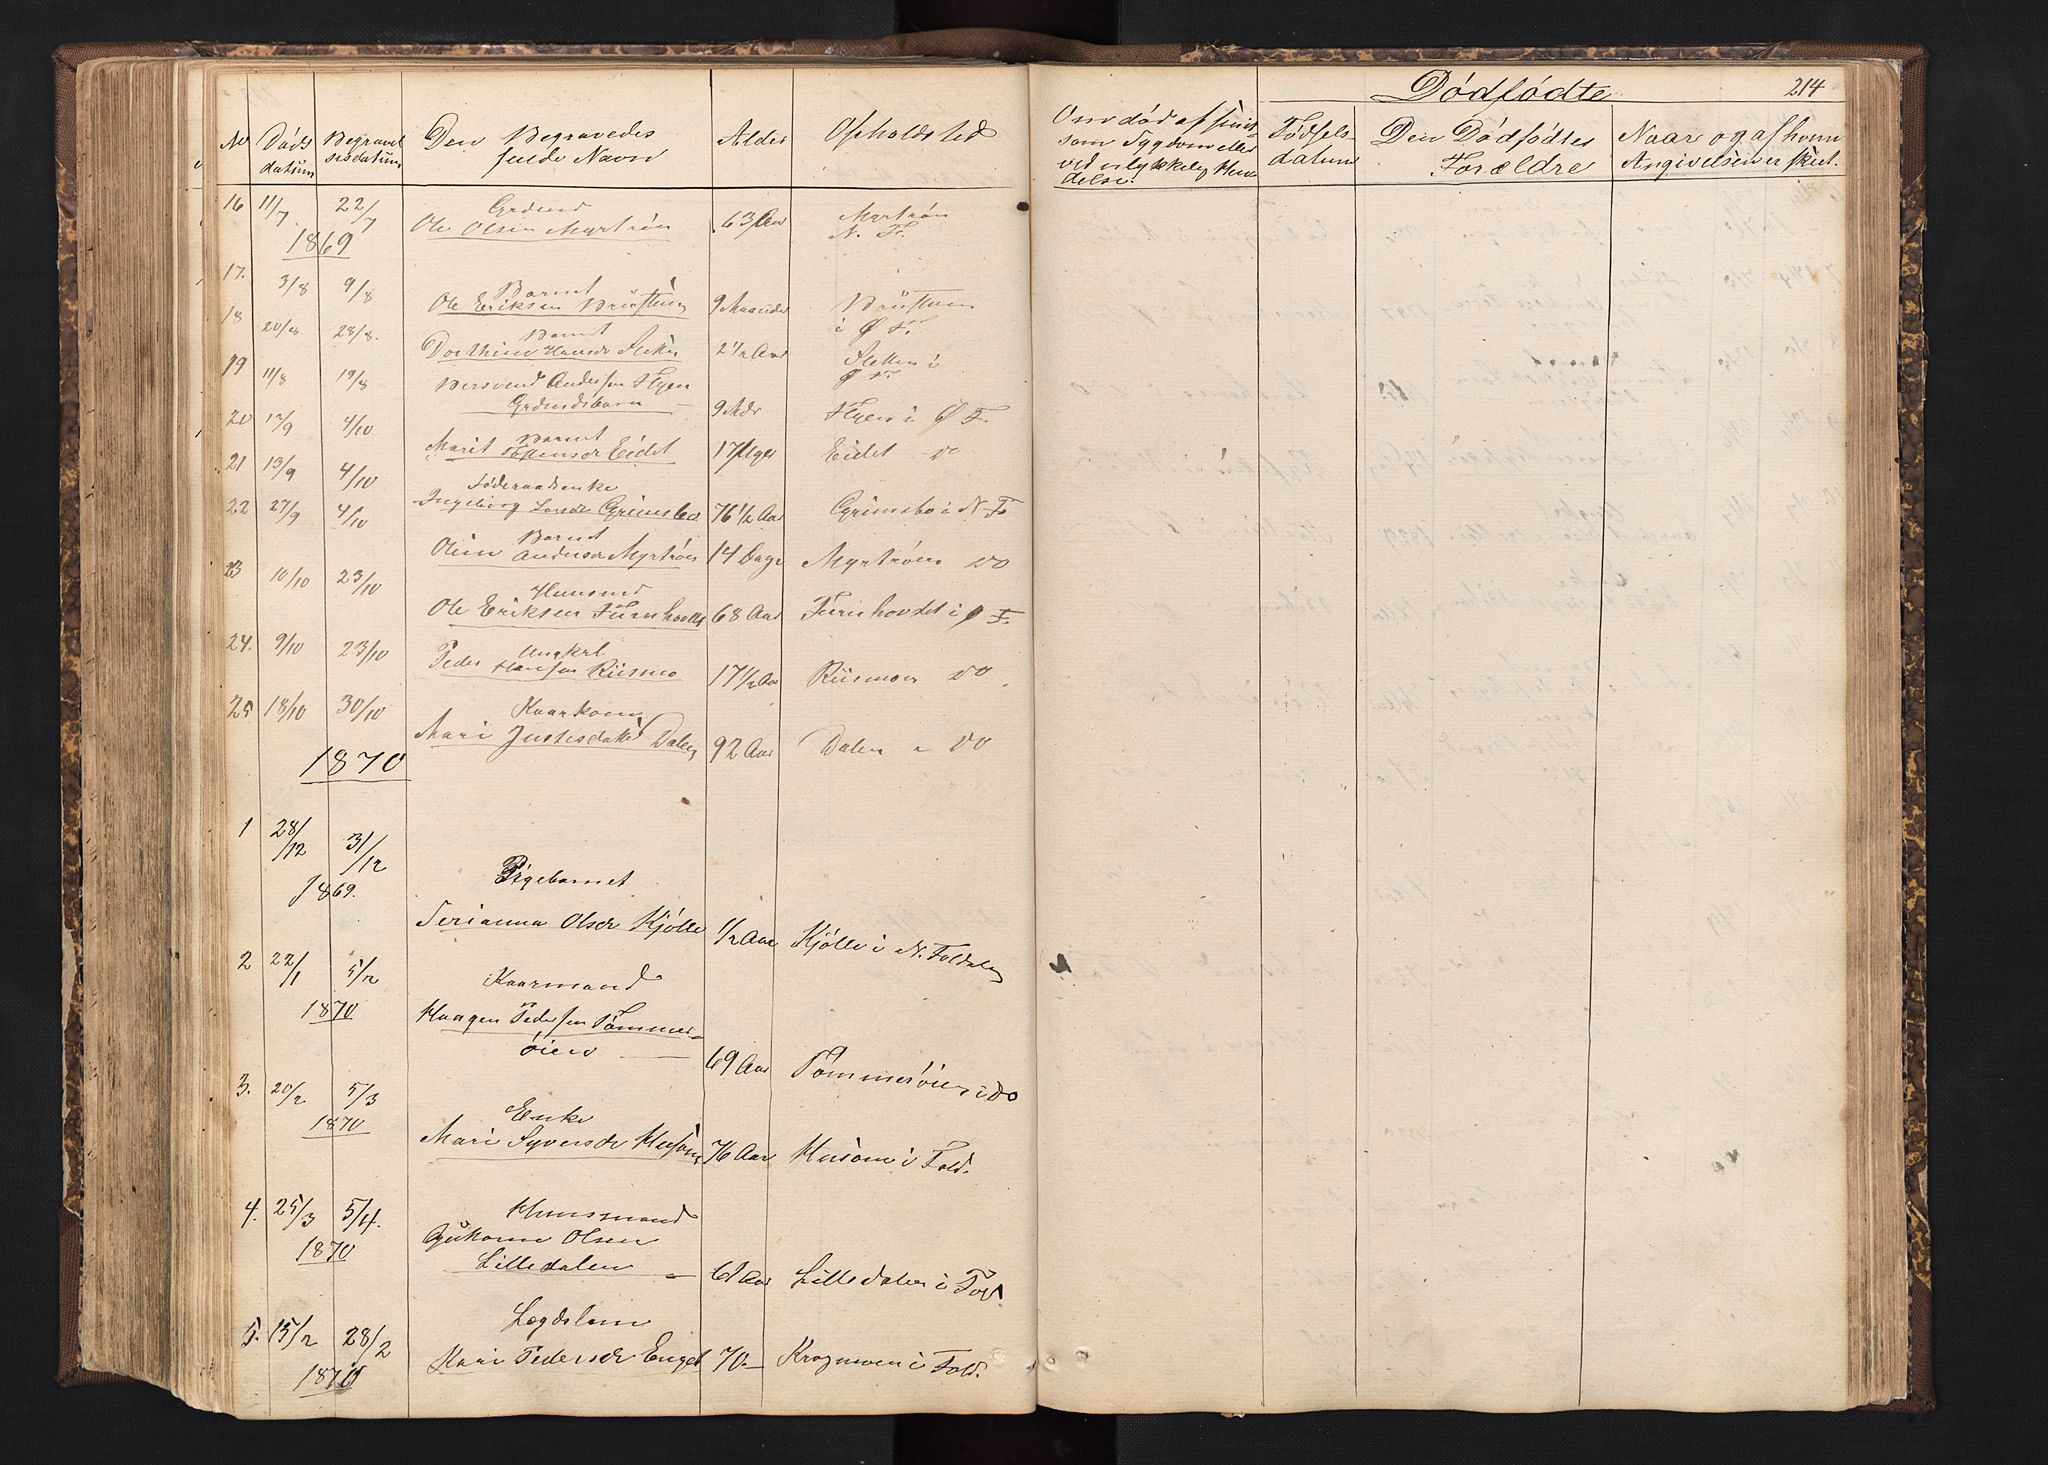 No Døds datum Begravel sesdatum Den Begravedes fulde Navn Alder Opholdsted
Om død af smit-
som Sygdom eller
ved ulykkelig Hæn
delse.
Dødfødte 214
Fødsels datum Den Dødfødtes Forældre Naar og af hvem Angivelsen er skeet.
16 11/7 22/7 Grdmd
1869 Ole Olsen Myrtrøen 63 Aar Myrtrøen
N. F.
17. 3/8 9/8 Barnet
Ole Eriksen Brústuen 9 Maaneder Brústuen
i Ø F.
18 20/8 28/8. Barnet
Dorthine Hansdr 2 1/2 Aar
i
Ø F.
19 11/8 19/8 Andersen
Grdmdsbarn 9 Mdr i Ø F.
20 17/9 4/10 Barnet
Marit Eidet 17 Uger Eidet do
21 13/9 4/10 Føderaadsenke
Ingeborg Grimsbo 76 1/2 Aar Grimsbo i N. F.
22 27/9 4/10 Barnet
Oline Andersdr Myrtrøen 14 Dage Myrtrøen do
23 10/10 23/10 Huusmd
Ole Eriksen Furuhovdet 68 Aar Furuhovdet i Ø F.
24. 9/10 23/10 Ungkrl
Peder Hansen Riismo 17 1/2 Aar Riismoen do
25 18/10 30/10 Kaarkone
Mari Justesdatter Dalen 92 Aar Dalen " do
1870
1 28/12 31/12
1869. Pigebarnet
Serianna Olsdr Kjølle 1/2 Aar Kjølle i N. Foldalen
2 22/1 5/2 Kaarmand
1870 Haagen Pedersen Tømmer=
øien 69 Aar Tømmerøien i do
3. 20/2 5/3 Enke
1870 Mari Syversdr Husom 76 Aar Husom i Fold.
4. 25/3 5/4. Huusmand
1870 Olsen
Lilledalen 61 Aar Lilledalen i Fold
5. 15/2 28/2 Lægdslem
1870 Kari Pedersdr Enget 70 — Krogmoen i Fold.